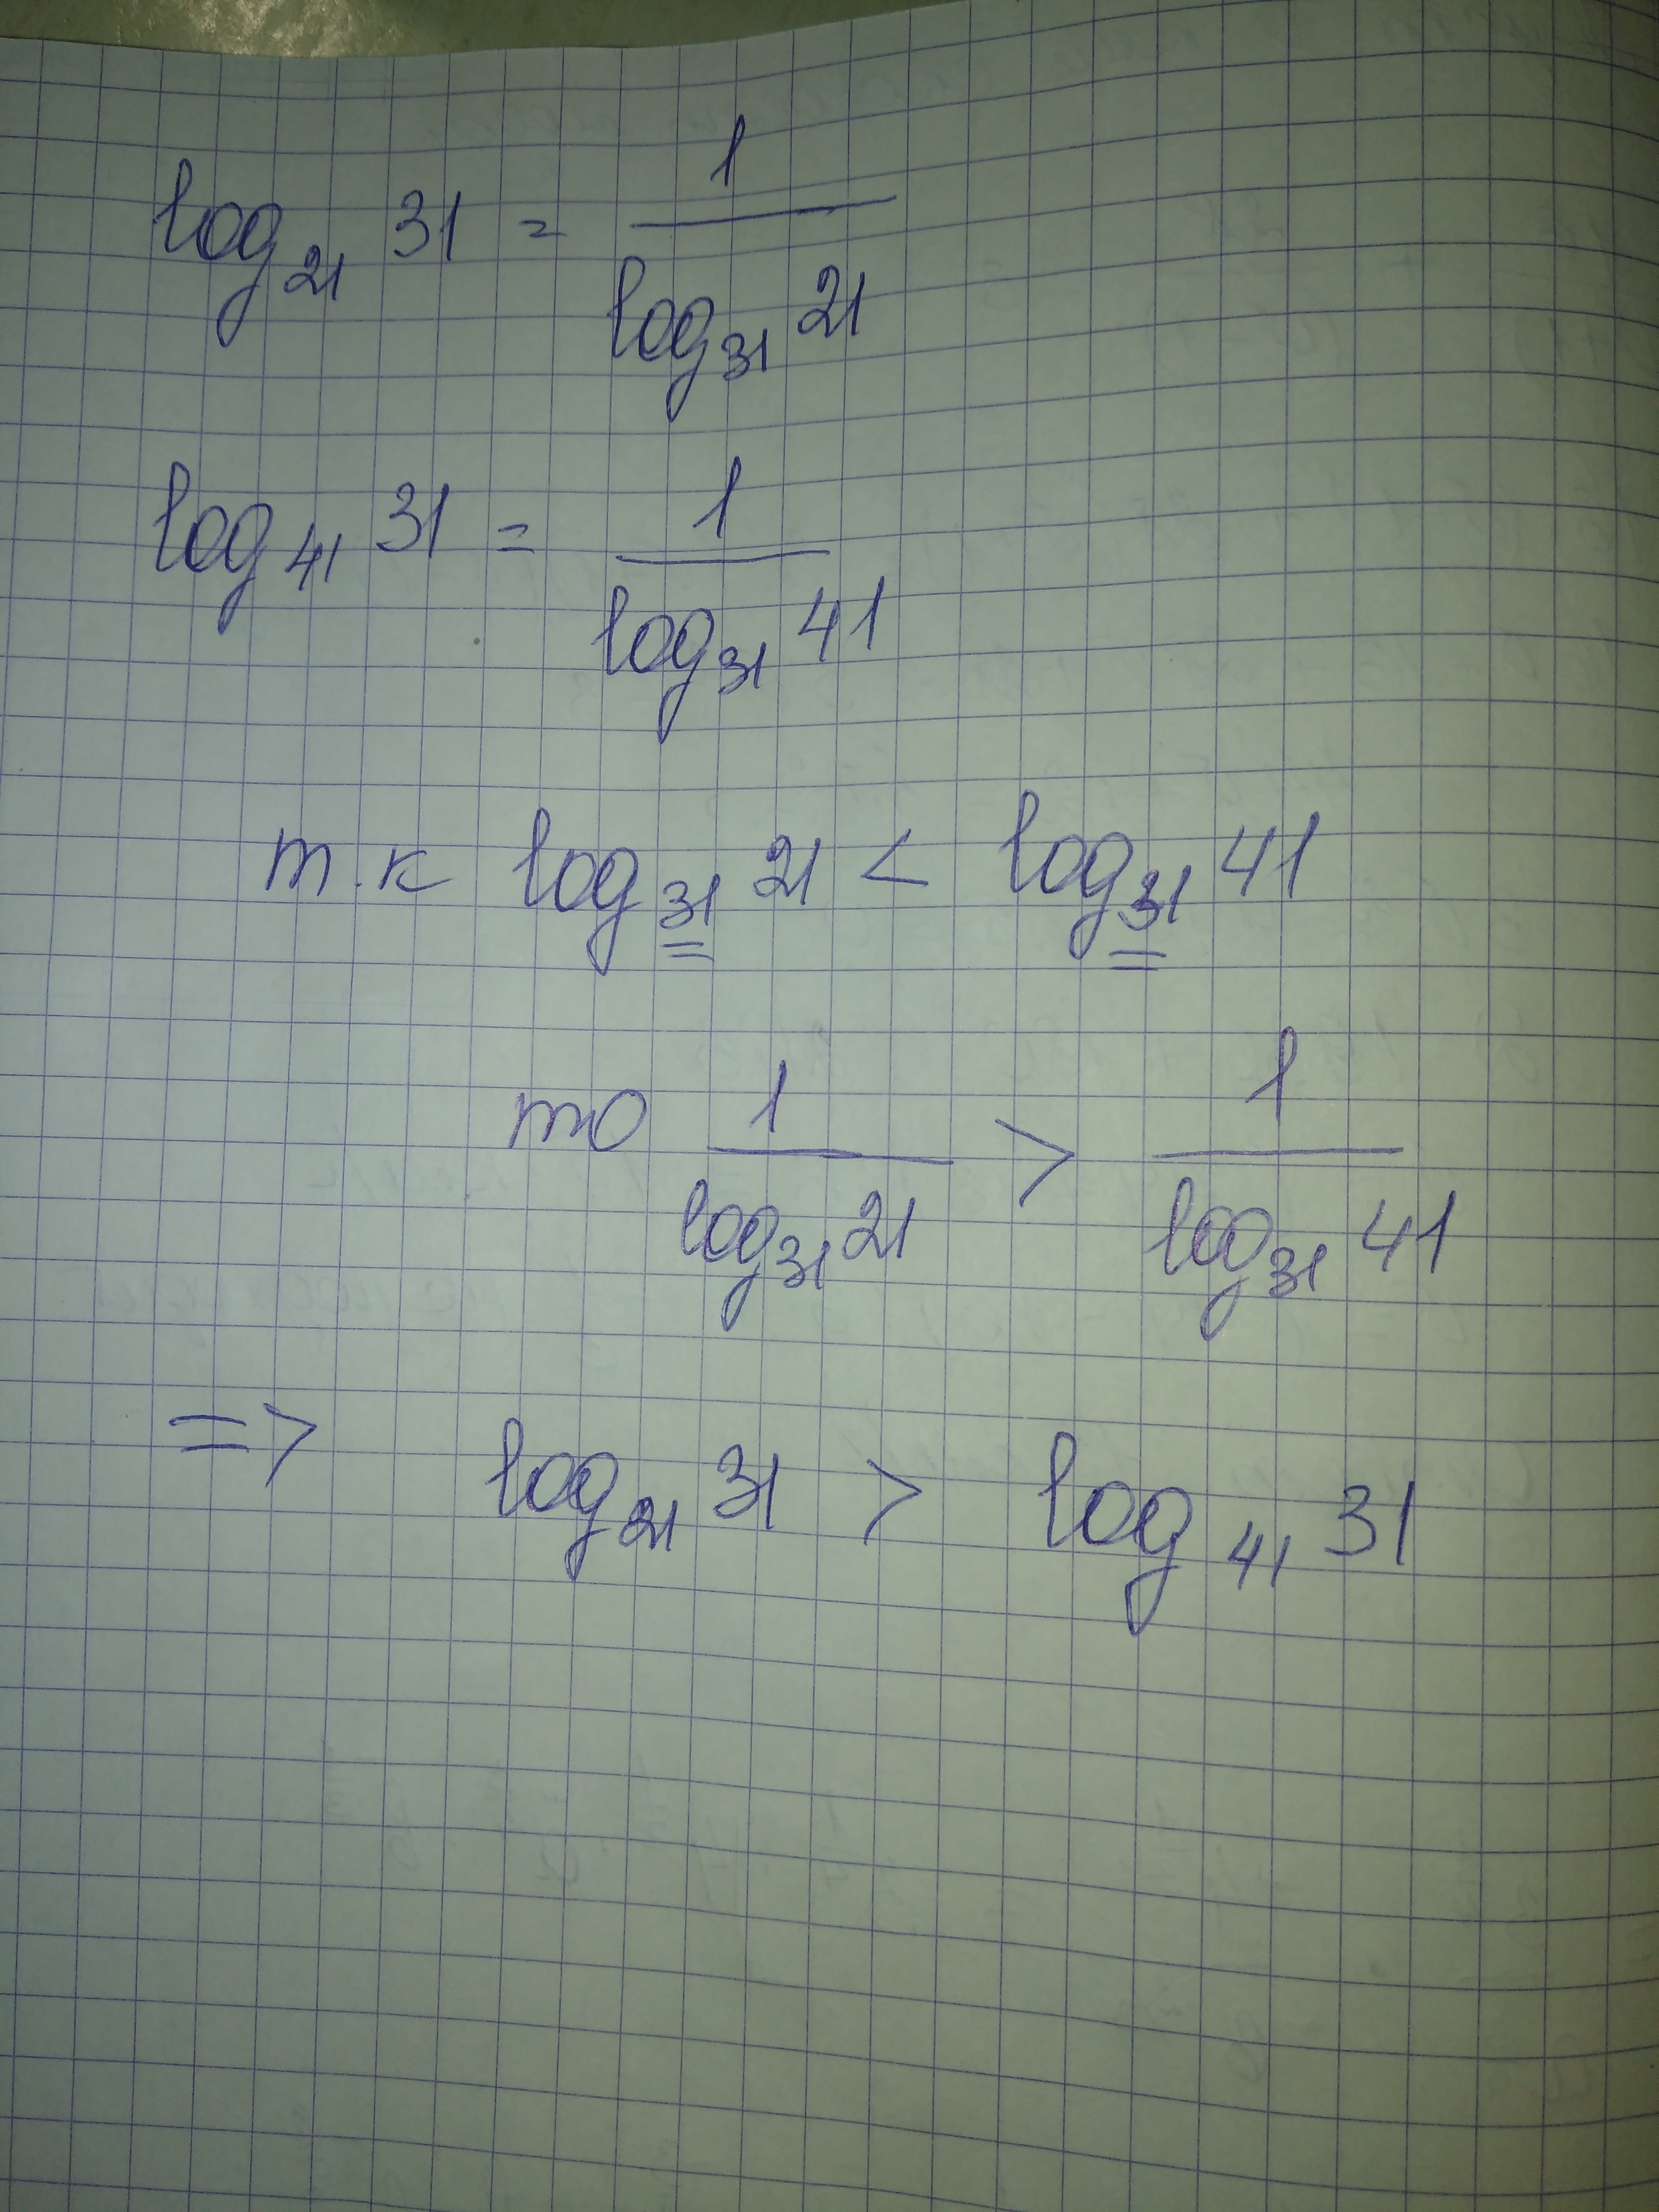 log₂₁ 31 = 1 / log₃₁ 21
log₄₁ 31 = 1 / log₃₁ 41
т.к log₃₁ 21 < log₃₁ 41
то 1 / log₃₁ 21 > 1 / log₃₁ 41
=> log₂₁ 31 > log₄₁ 31